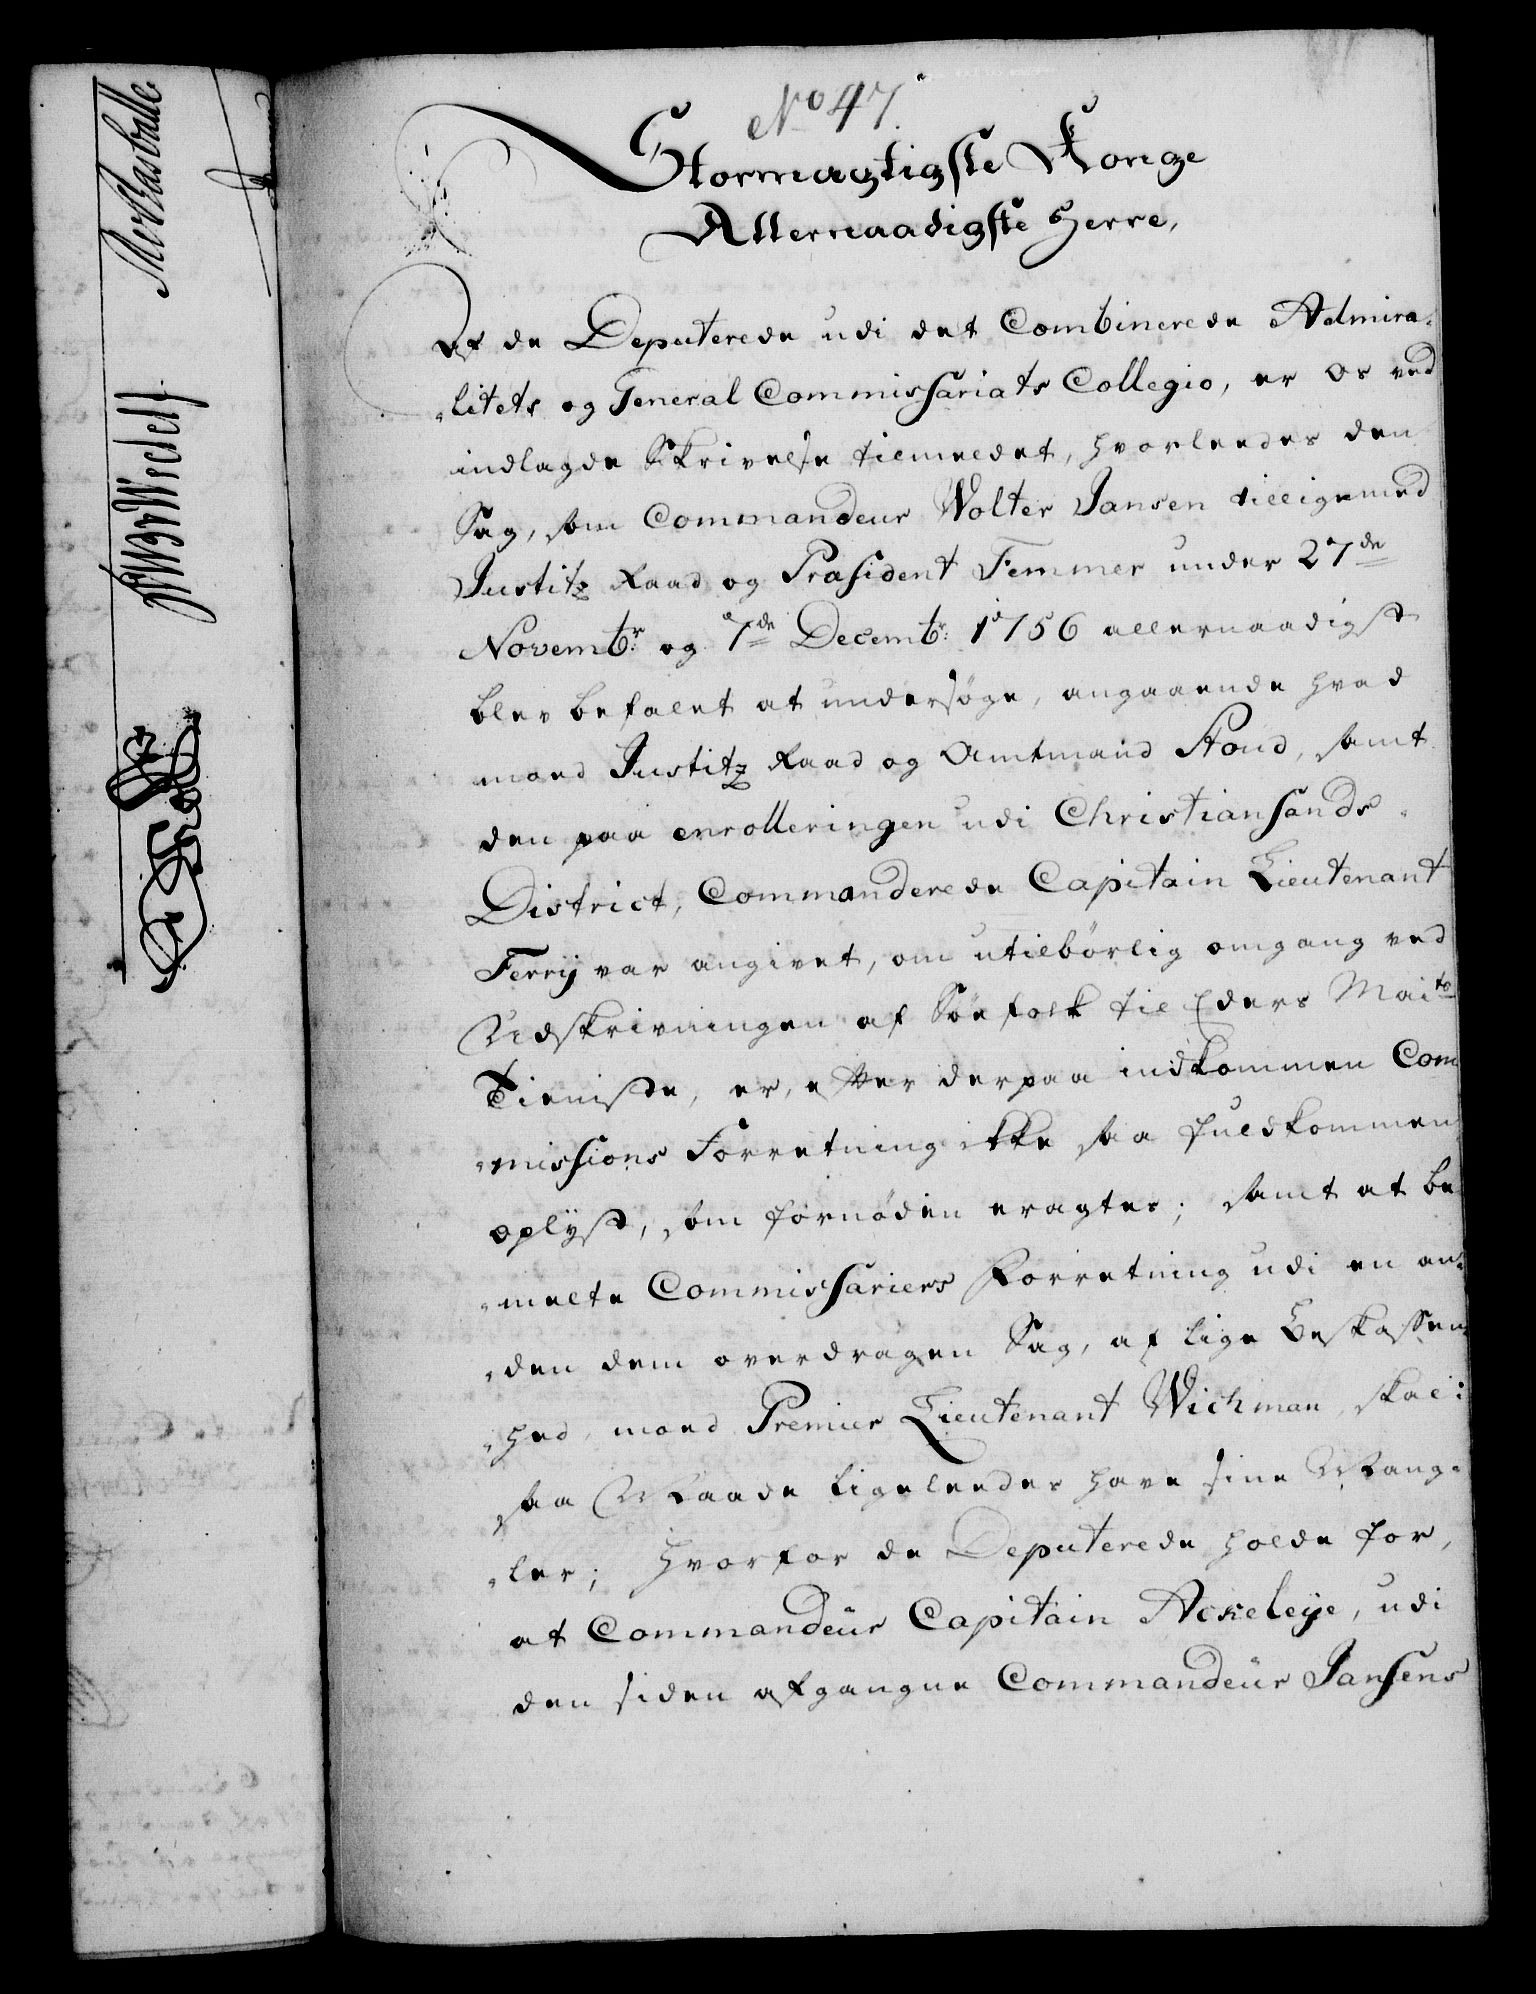 No 47.
Stormægtigste Konge
Allernaadigste Herre,
Af de Deputerede udi det Combinerede Admira-
-litets og General Commissariats Collegio, er os ved
indlagde Skrivelse tilmeldet, hvorledes den
Sag, som Commandeur Wolter Jansen tilligemed
Justitz Raad og Præsident Femmer under 27de
Novembr. og 7de Decembr. 1756 allernaadigst
blev befalet at undersøge, angaaende hvad
moed Justitz Raad og Amtmand Stoud, samt
den paa enrolleringen udi Christiansands-
District, Commanderede Capitain Lieutenant
Ferrÿ var angivet, om utilbörlig omgang ved
Udskrivningen af Söefolk til Eders Maits
Tieniste, er, efter derpaa indkommen Com
-missions Forretning ikke saa fuldkommen
oplÿst, som fornöden eragtes; samt at be
-melte Commissariers Forretning udi en an-
-den dem overdragen Sag, af lige Beskaffen-
-hed, moed Premier Lieutenant Wichman, skal i
saa Maade ligeleedes have sine Mang-
-ler; Hvorfor de Deputerede holde for,
at Commandeur Capitain Ackeleÿe, udi
den siden afgangne Commandeur Jansens